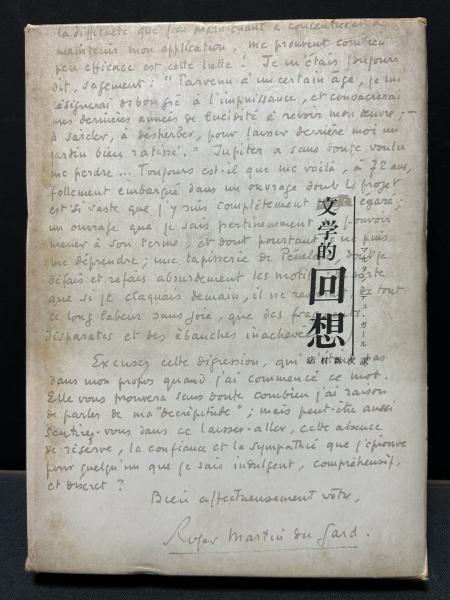 la difficulté que j'ai maintenant à concentrer et à
maintenir mon application, me prouvent combien
peu efficace est cette lutte ! Je m'étais toujours
dit, sagement : "Parvenu à un certain âge, je me
résignerai de bon gré à l'impuissance, et consacrerai
mes dernières années de lucidité à revoir mon œuvre ; —
à sarcler, à désherber, pour laisser derrière moi un
jardin bien ratissé." Jupiter a sans doute voulu
me perdre ... Toujours est-il que me voilà, à 72 ans,
follement embarqué dans un ouvrage dont le projet
est si vaste que j'y suis complètement égaré ;
un ouvrage que je sais pertinemment pouvoir
mener à son terme, et dont pourtant je ne puis
me déprendre ; une tapisserie de Pénélope, dont je
défais et refais absurdement les motifs sorte
que si je claquais demain, il ne de tout
ce long labeur sans joie, que des fragments
disparates et des ébauches inachevées
Excusez cette digression, qui n'était pas
dans mon propos quand j'ai commencé ce mot.
Elle vous prouvera sans doute combien j'ai raison
de parler de ma "décrépitude" ; mais peut-être aussi
sentirez-vous dans ce laisser-aller, cette absence
de réserve, la confiance et la sympathie que j'éprouve
pour quelqu'un que je sais indulgent, compréhensif,
et discret ?
Bien affectueusement vôtre,
Roger Martin du Gard.
文学的
回想
マルタン・デュ・ガール
店村新次訳